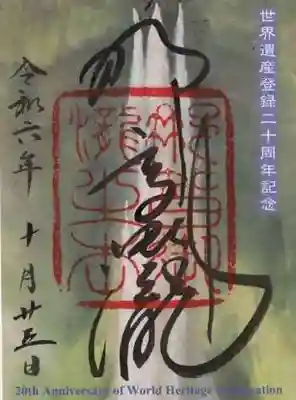 世界遺産登録二十周年記念
那智御瀧
令和六年 十月廿五日
20th Anniversary of World Heritage